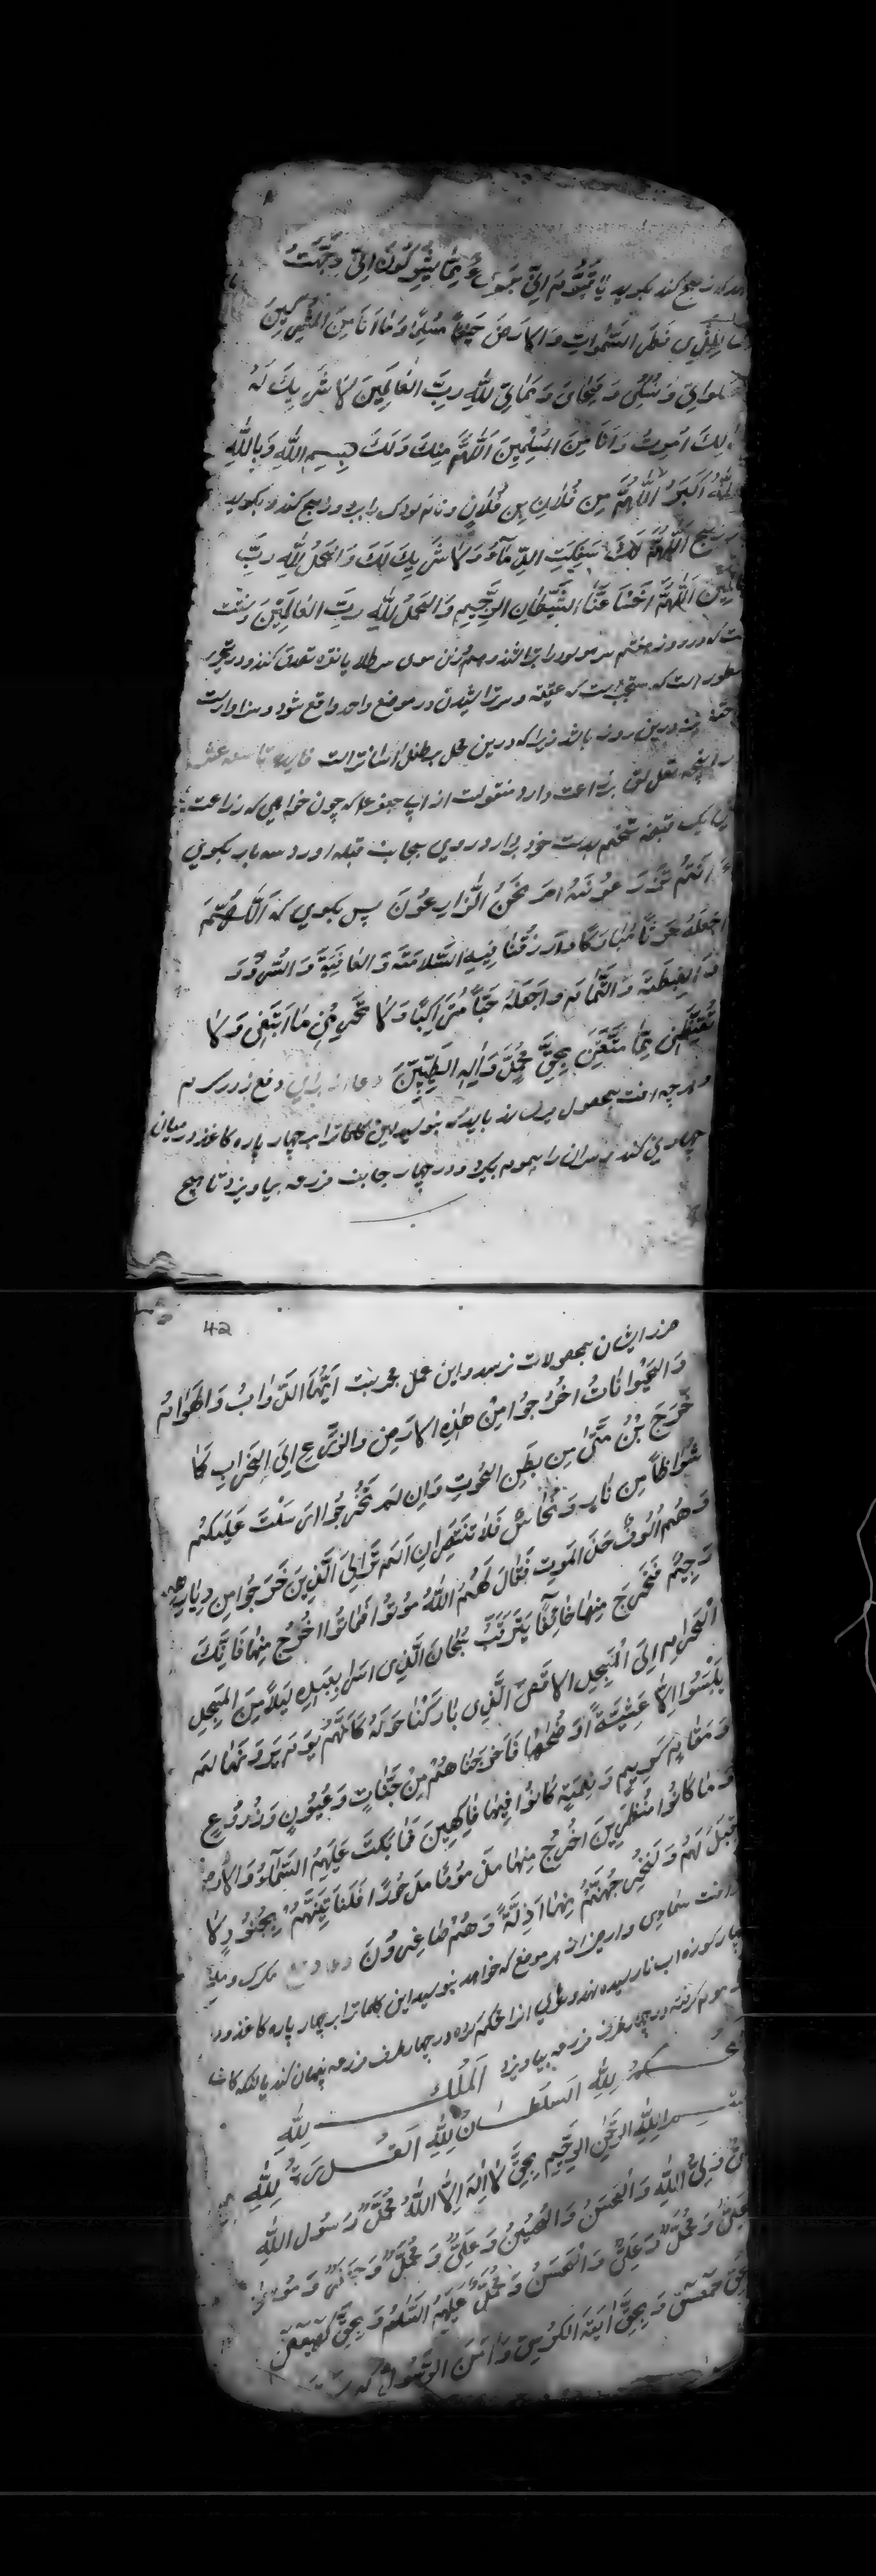 که ذبح کند بکوید یا قَوْمِ اِنّی بَرِیءٌ مِمَّا تُشْرِکُونَ اِنّی وَجَّهْتُ
لِلَّذِی فَطَرَ السَّمٰواتِ وَالاَرضَ حَنِیفاً مُسْلِماً وَمٰا اَنَا مِنَ المُشْرِکِینَ
صلوٰتِی وَنُسُکِی وَمَحْیٰایَ وَمَمٰاتِی لِلّٰهِ رَبِّ العٰالَمِینَ لاٰ شَرِیكَ لَهُ
ذٰلِكَ اُمِرتُ وَاَنَا مِنَ المُسْلِمِینَ اَللّٰهُمَّ مِنْكَ وَلَكَ بِسمِ اللّٰهِ وَبِاللّٰهِ
اللّٰهُ اَکبَرُ اَللّٰهُمَّ مِن فُلاٰنِ بنِ فُلاٰنٍ ونام مولود را ببرد و ذبح کند و بکوید
ذبح اَللّٰهُمَّ لَكَ سَفَکتُ الدِّمآءَ وَلاٰ شَرِیكَ لَكَ وَالحَمدُ لِلّٰهِ رَبِّ
العٰالَمِینَ اَللّٰهُمَّ اخْسَأ عَنَّا الشَّیْطٰانَ الرَّجِیمِ وَالحَمدُ لِلّٰهِ رَبِّ العٰالَمِینَ وسنّت
است که در روز هفتم سر مولود را بتراشند و هم وزن موی سر طلا یا نقره تصدق کنند و در تحریر
مسطور است که مستحب است که عقیقه و سر تراشیدن در موضع واحد واقع شود و سزاوار است
ختنه نیز درین روز باشد زیرا که درین محل بر طفل اسانتر است فایده تاسعه عشر
در انچه تعلق بزراعت دارد منقولست از ابی جعفر ع که چون خواهی که زراعت
یک قبضه تخم بدست خود بردار و روی بجانب قبله اور و سه بار بکوی
ءَ اَنتُم تَزْرَعُونَهُ اَمْ نَحْنُ الزّٰارِعُونَ پس بکوی که اَللّٰهُمَّ
اجعَلهُ حَرثاً مُبٰارَکاً وَارزُقنٰا فِیهِ السَّلاٰمَةَ وَالعٰافِیَةَ وَالسُّرُورَ
وَالغِبطَةَ وَالتَّمٰامَ وَاجعَلهُ حَبّاً مُتَرٰاکِباً وَلاٰ تَحرِمْنِی مٰا اَبْتَغِی وَلاٰ
تَفْتِنِّی بِمٰا مَتَّعْتَنِی بِحَقِّ مُحَمَّدٍ وَاٰلِهِ الطَّیِّبِینَ دعا از برای دفع
و هر چه افت بمحصول میرساند باید که بنویسد این کلمات را بر چهار پاره کاغذ و در میان
چهار نی کند و سر ان را بموم بکیرد و در چهار جانب مزرعه بیاویزد تا هیچ
42
ضرر ایشان بمحصولات نرسد و این عمل مجربست اَیَّتُهَا الدَّوٰابُّ وَالهَوٰامُّ
وَالحَیَوٰانٰاتُ اخرُجُوا مِنْ هٰذِهِ الاَرضِ وَالزَّرعِ اِلَی الخَرٰابِ کَمٰا
خَرَجَ بْنُ مَتّٰی مِن بَطنِ الحُوتِ وَاِن لَم تَخْرُجُوا اَرسَلْتُ عَلَیکُم
شُوٰاظاً مِن نٰارٍ وَنُحٰاسٌ فَلاٰ تَنْتَصِرٰانِ اَلَم تَرَ اِلَی الَّذِینَ خَرَجُوا مِن دِیٰارِهِم
وَهُم اُلُوفٌ حَذَرَ المَوتِ فَقٰالَ لَهُمُ اللّٰهُ مُوتُوا فَمٰاتُوا اخْرُج مِنهٰا فَاِنَّكَ
رَجِیمٌ فَخَرَجَ مِنهٰا خٰائِفاً یَتَرَقَّبُ سُبْحٰانَ الَّذِی اَسرٰی بِعَبدِهِ لَیلاً مِنَ المَسجِدِ
الحَرٰامِ اِلَی المَسجِدِ الاَقصَی الَّذِی بٰارَکنٰا حَولَهُ کَاَنَّهُم یَومَ یَرَونَهٰا لَم
یَلبَثُوا اِلاّٰ عَشِیَّةً اَو ضُحٰهٰا فَاَخرَجنٰاهُم مِن جَنّٰاتٍ وَعُیُونٍ وَزُرُوعٍ
وَمَقٰامٍ کَرِیمٍ وَنَعمَةٍ کٰانُوا فِیهٰا فٰاکِهِینَ فَمٰا بَکَتْ عَلَیهِمُ السَّمٰآءُ وَالاَرضُ
وَمٰا کٰانُوا مُنظَرِینَ اخرُج مِنهٰا مَذؤُماً مَدحُوراً فَلَنَاتِیَنَّهُم بِجُنُودٍ لاٰ
قِبَلَ لَهُم وَلَنُخرِجَنَّهُم مِنهٰا اَذِلَّةً وَهُم صٰاغِرُونَ دعا دفع
افت سماوی و ارضی از هر موضع که خواهد بنویسد این کلمات را بر چهار پاره کاغذ و در
چهار کوزه اب نارسیده نهد و سرهای انرا محکم کرده در چهار طرف مزرعه پنهان کند یا انکه کاغذ
موم کرفته در چهار طرف مزرعه بیاویزد اَلمُلكُ لِلّٰهِ
لِلّٰهِ السُّلطٰانُ لِلّٰهِ القُدرَةُ لِلّٰهِ
بسم اللّٰهِ الرَّحمٰنِ الرَّحِیمِ بِحَقِّ لاٰ اِلٰهَ اِلاَّ اللّٰهُ مُحَمَّدٌ رَسُولُ اللّٰهِ
عَلِیٌّ وَلِیُّ اللّٰهِ وَالحَسَنُ وَالحُسَینُ وَعَلِیٌّ وَمُحَمَّدٌ وَجَعفَرٌ وَمُوسٰی
وَعَلِیٌّ وَمُحَمَّدٌ وَعَلِیٌّ وَالحَسَنُ وَمُحَمَّدٌ عَلَیهِمُ السَّلٰامُ وَبِحَقِّ کٓهٰیٰعٓصٓ
بِحَقِّ حٰمٓعٓسٓقٓ وَبِحَقِّ اٰیَةِ الکُرسِیِّ وَاٰمَنَ الرَّسُولُ